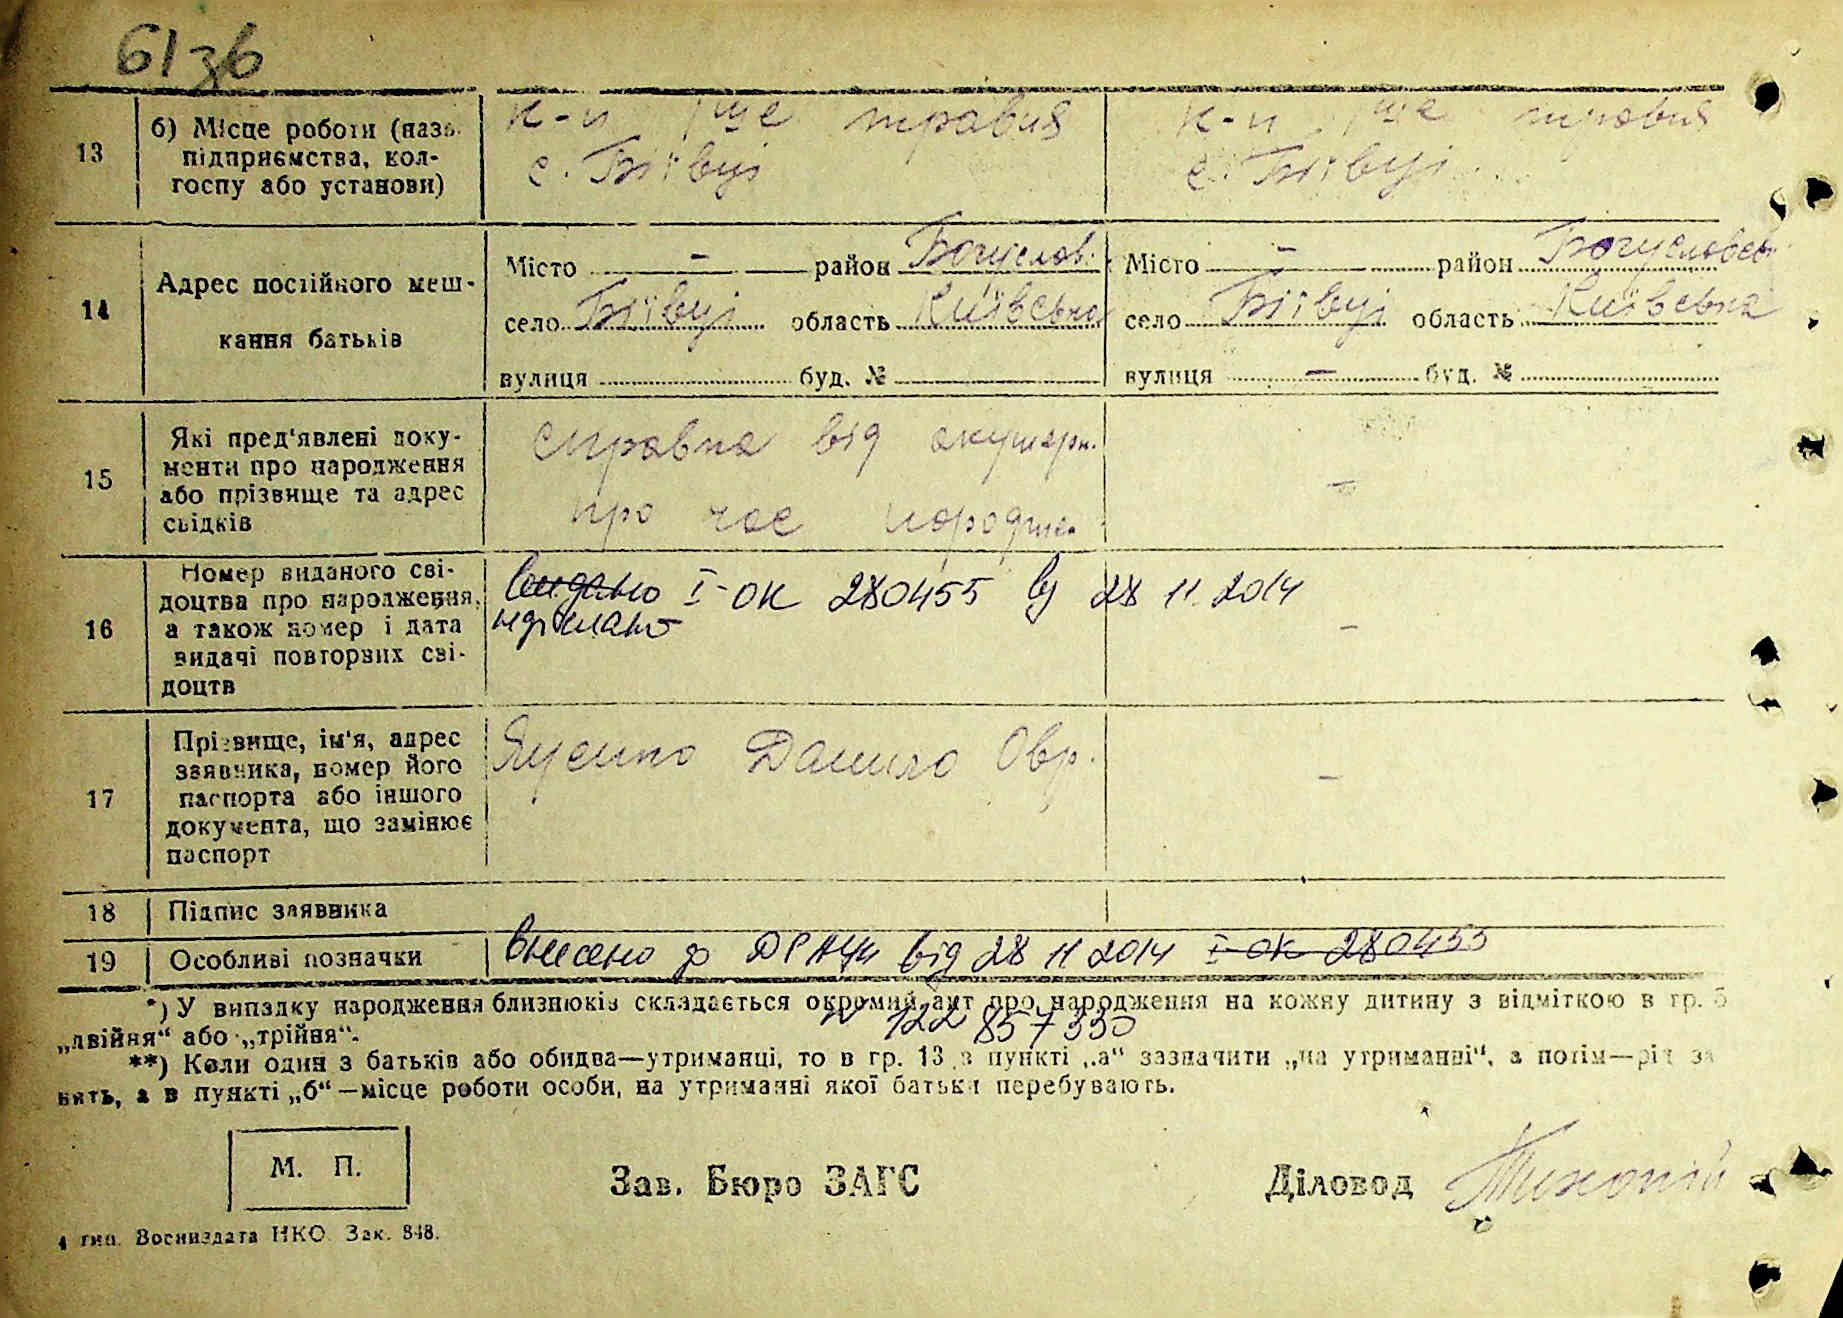 61зб
13
б) Місце роботи (назв.
підприємства, кол-
госпу або установи)
к-п 1ше травня
с. Біївці
к-п 1ше травня
с. Біївці
14
Адрес постійного меш-
кання батьків
Місто – район Богуслов.
село Біївці область Київська
вулиця буд. №
Місто – район Богуславськ
село Біївці область Київська
вулиця – буд. №
15
Які пред'явлені доку-
менти про народження
або прізвище та адрес
свідків
справка від акушерк.
про час народже.
–
16
Номер виданого сві-
доцтва про народження,
а також номер і дата
видачі повторних сві-
доцтв
Видано І-ОК 280455 від 28 11 2014
надіслано
–
17
Прізвище, ім'я, адрес
заявника, номер його
паспорта або іншого
документа, що замінює
паспорт
Яценко Данило Овр.
–
18
Підпис заявника
19
Особливі позначки
Внесено до ДРАЦС від 28 11 2014 І-ОК 280455
№ 122 857330
*) У випадку народження близнюків складається окремий акт про народження на кожну дитину з відміткою в гр. 5
„двійня“ або „трійня“.
**) Коли один з батьків або обидва—утриманці, то в гр. 13 в пункті „а“ зазначити „на утриманні“, а потім—рід за
нять, а в пункті „б“—місце роботи особи, на утриманні якої батьки перебувають.
М. П.
Зав. Бюро ЗАГС
Діловод
4 тип. Воениздата НКО Зак. 848.